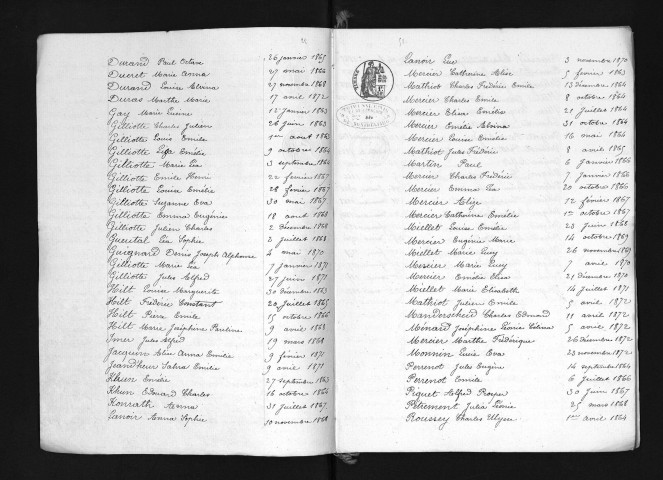 Durand Paul Octave 26 janvier 1865
Ducret Marie Anna 27 mai 1866
Durand Louise Elvina 27 novembre 1868
Duras Marthe Marie 17 avril 1872
Gay Marie Lucine 12 janvier 1863
Gilliotte Charles Julien 26 juin 1863
Gilliotte Louis Emile 1er août 1863
Gilliotte Lise Emélie 9 octobre 1864
Gilliotte Marie Léa 3 septembre 1866
Gilliotte Emile Henri 22 février 1867
Gilliotte Louise Emélie 28 février 1867
Gilliotte Suzanne Eva 30 mai 1867
Gilliotte Emma Eugénie 18 août 1868
Gilliotte Julien Charles 2 décembre 1868
Léa Sophie 2 juillet 1868
Guignard Denis Joseph Alphonse 4 mai 1870
Gilliotte Marie Léa 7 janvier 1871
Gilliotte Jules Alfred 27 juin 1871
Hilt Louise Marguerite 30 décembre 1863
Hilt Frédéric Constant 20 juillet 1865
Hilt Pierre Emile 15 octobre 1866
Hilt Marie Joséphine Pauline 9 avril 1868
Imer Jules Alfred 19 mars 1868
Jacquin Elise Anna Emélie 9 février 1871
Jeandheur Sahra Emélie 9 avril 1871
Khun Emélie 27 septembre 1863
Khun Edouard Charles 16 octobre 1864
Konrath Anna 31 juillet 1867
Lanoir Anna Sophie 10 novembre 1868
Lanoir Luc 3 novembre 1870
Mercier Catherine Elise 5 février 1863
Mathiot Charles Frédéric Emile 13 décembre 1864
Mercier Charles Emile 8 octobre 1864
Mercier Elisa Emélie 21 juillet 1864
Mercier Emélie Elvina 31 octobre 1864
Mercier Louise Emélie 16 mai 1864
Mathiot Jules Frédéric 8 avril 1865
Martin Paul 6 janvier 1866
Mercier Charles Frédéric 7 janvier 1866
Mercier Emma Léa 20 octobre 1866
Mercier Alize 12 février 1867
Mercier Catherine Emélie 1er octobre 1867
Miellet Louise Emélie 23 juin 1868
Mercier Eugénie Marie 14 octobre 1869
Miellet Marie Lucy 26 novembre 1869
Mercier Marie Lucy 7 avril 1870
Mercier Emélie Elisa 21 décembre 1870
Miellet Marie Elisabeth 14 juillet 1871
Mathiot Julien Emile 5 avril 1872
Manderscheid Charles Edmond 11 avril 1872
Ménard Joséphine Léonie Célina 5 avril 1872
Mercier Marthe Frédérique 26 décembre 1872
Monnin Lucie Eva 23 novembre 1872
Perrenot Jules Eugène 14 septembre 1864
Perrenot Emile 6 juillet 1866
Piquet Alfred Prosper 30 juin 1867
Pétrement Julia Léonie 25 mars 1868
Roussey Charles Ulysse 1er avril 1864